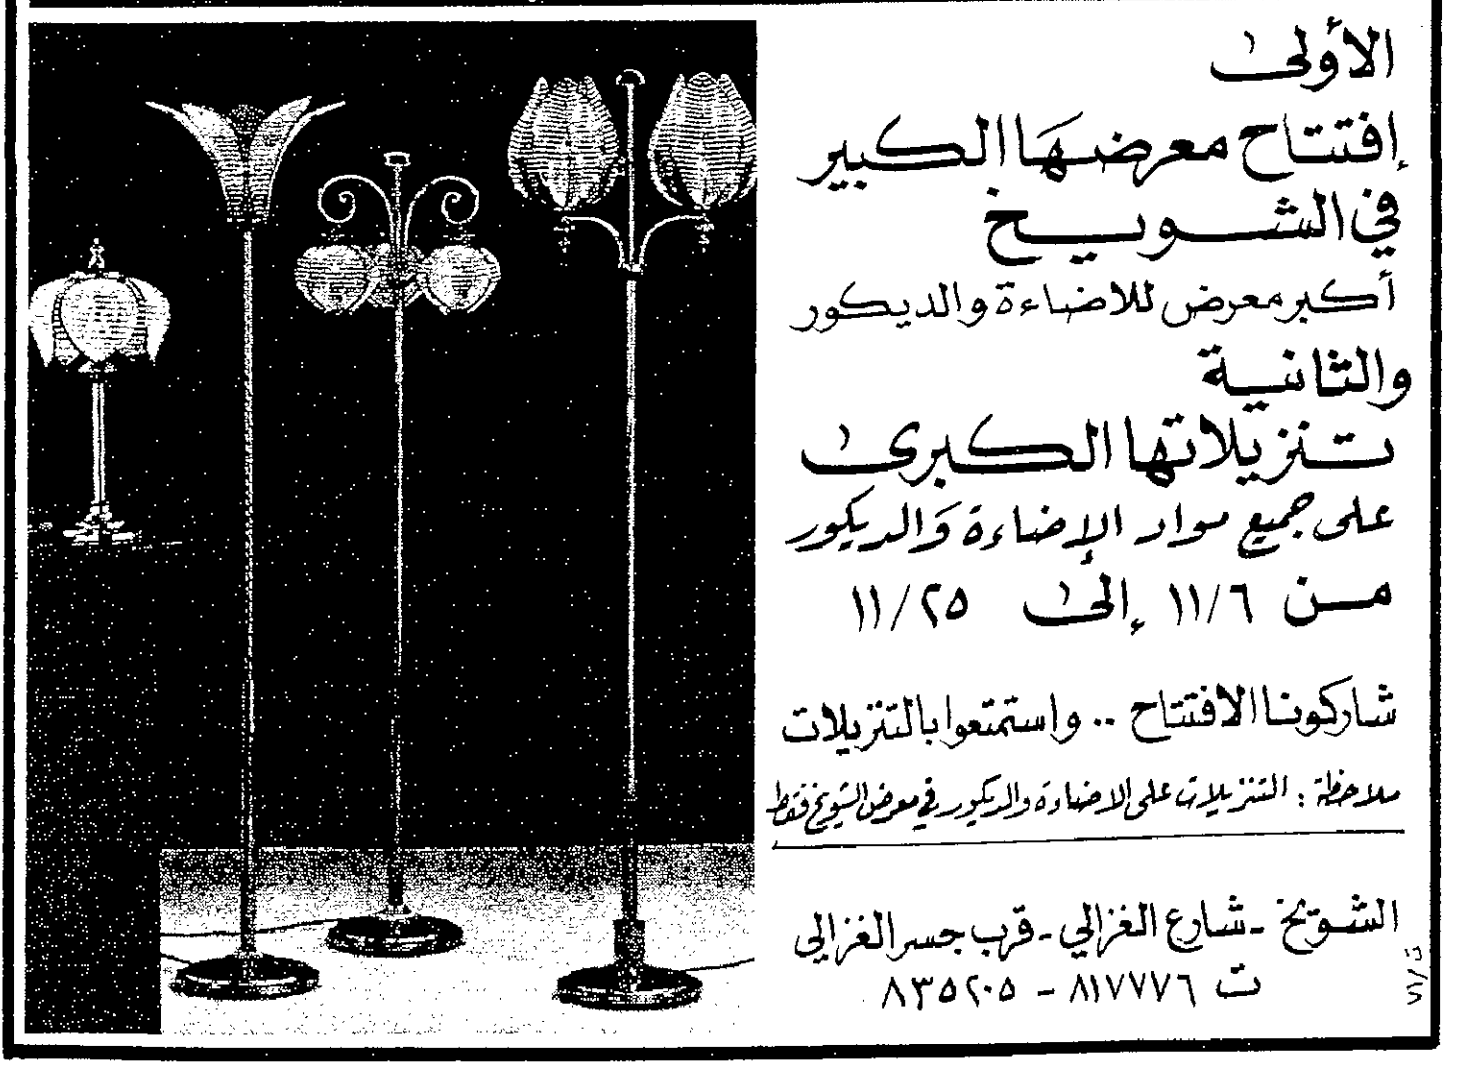 الأولى
إفتتاح معرضهَا الكبير
في الشويخ
أكبر معرض للاضاءة والديكور
والثانية
تنزيلاتها الكبرى
على جميع مواد الإضاءة وَالديكور
من ١١/٦ إلى ١١/٢٥
شاركونا الافتتاح .. واستمتعوا بالتنزيلات
ملاحظة : التنزيلات على الاضاءة والديكور في معرض الشويخ فقط
الشويخ - شارع الغزالي - قرب جسر الغزالي
ت ٨١٧٧٧٦ - ٨٣٥٢٠٥